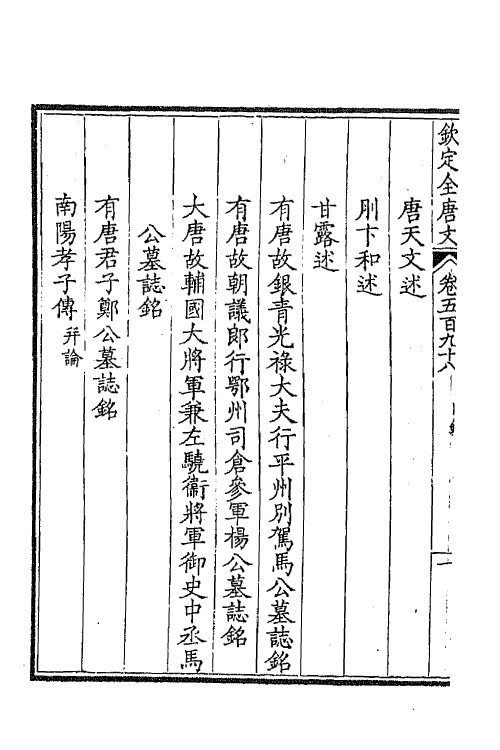 欽定全唐文 卷五百九十六 目錄 一
唐天文述
刖卞和述
甘露述
有唐故銀青光祿大夫行平州別駕馬公墓誌銘
有唐故朝議郎行鄂州司倉參軍楊公墓誌銘
大唐故輔國大將軍兼左驍衞將軍御史中丞馬
公墓誌銘
有唐君子鄭公墓誌銘
南陽孝子傳 幷論